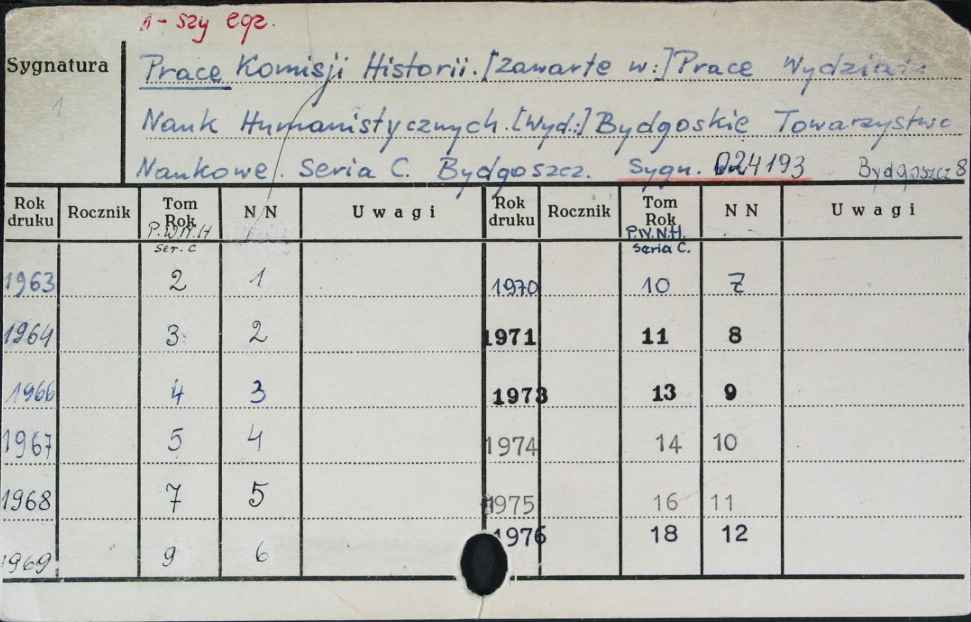 1-szy egz.
Sygnatura
Prace Komisji Historii. [Zawarte w:] Prace Wydziału
1
Nauk Humanistycznych. [Wyd.:] Bydgoskie Towarzystwo
Naukowe. Seria C. Bydgoszcz. Sygn. 024193 Bydgoszcz 8
Rok druku Rocznik Tom Rok N N Uwagi Rok druku Rocznik Tom Rok N N Uwagi
P.W.N.H Ser. C P.W.N.H. Seria C.
1963 2 1 1970 10 7
1964 3 2 1971 11 8
1966 4 3 1973 13 9
1967 5 4 1974 14 10
1968 7 5 1975 16 11
1969 9 6 1976 18 12